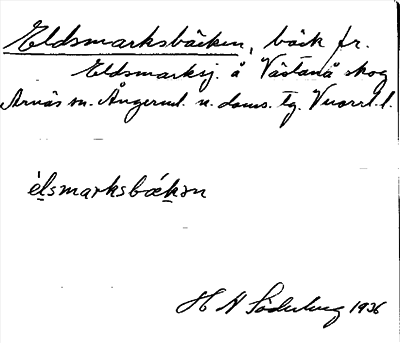 Eldsmarksbäcken, bäck fr.
Eldsmarksj. å Västanå skog
Arnäs sn. Ångerml. n. doms. tg. Vnorrl. l.
élsmarksbækən
H A Söderberg 1936